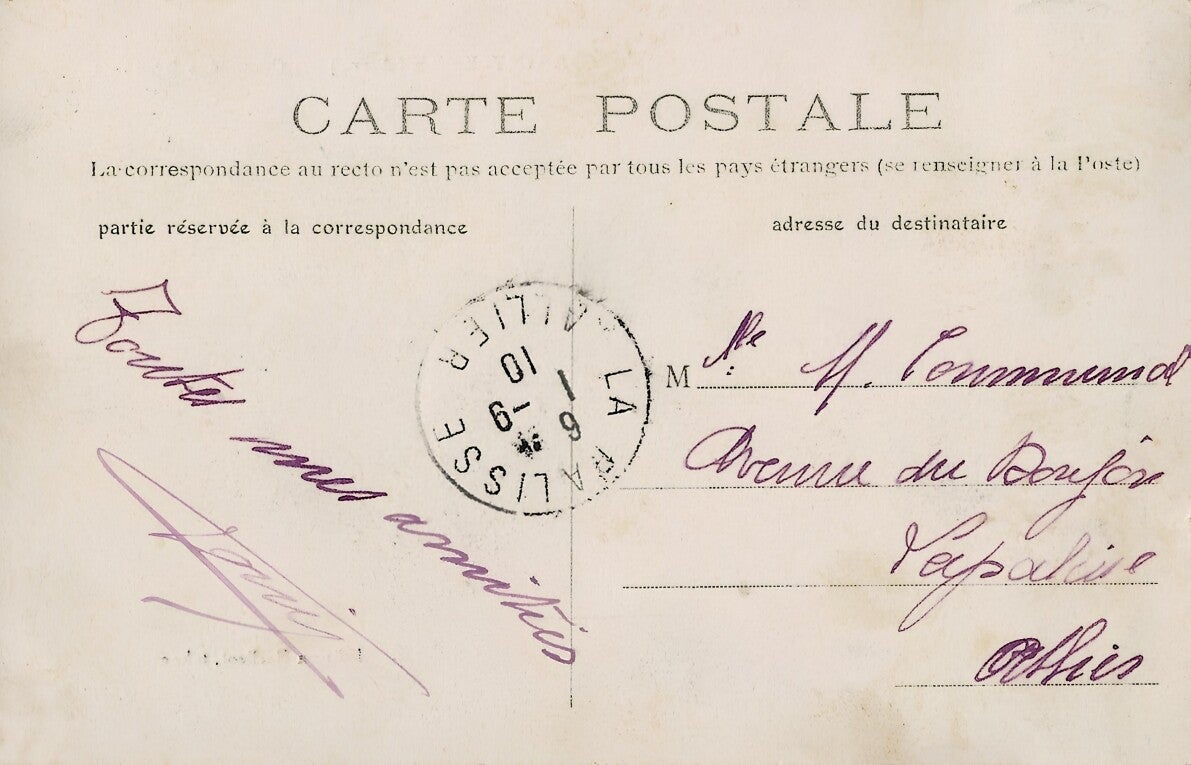 CARTE POSTALE
La correspondance au recto n'est pas acceptée par tous les pays étrangers (se renseigner à la Poste)
partie réservée à la correspondance
adresse du destinataire
Toutes mes amitiés
LA PALISSE
ALLIER
16 -9
10
M lle M. Communal
Avenue du Donjon
Lapalisse
Allier